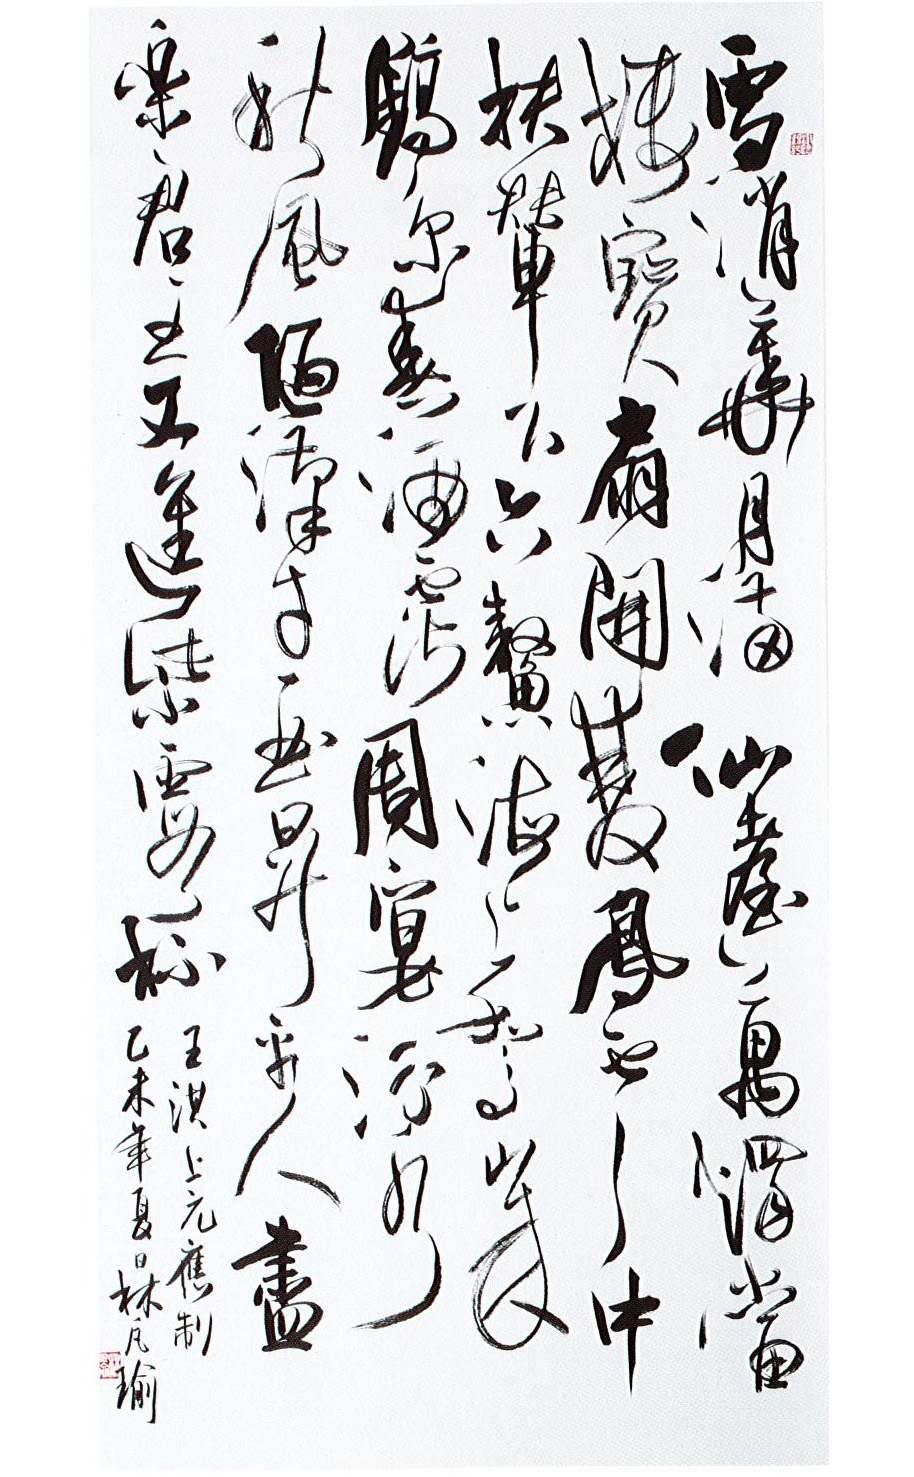 雪消華月滿仙臺萬燭當
樓寶扇開雙鳳雲中
扶輦下六鰲海上駕山來
鎬京春酒霑周宴汾水
秋風陋漢才一曲昇平人盡
樂君王又進紫霞杯
王淇上元應制
乙未年夏日林凡瑜